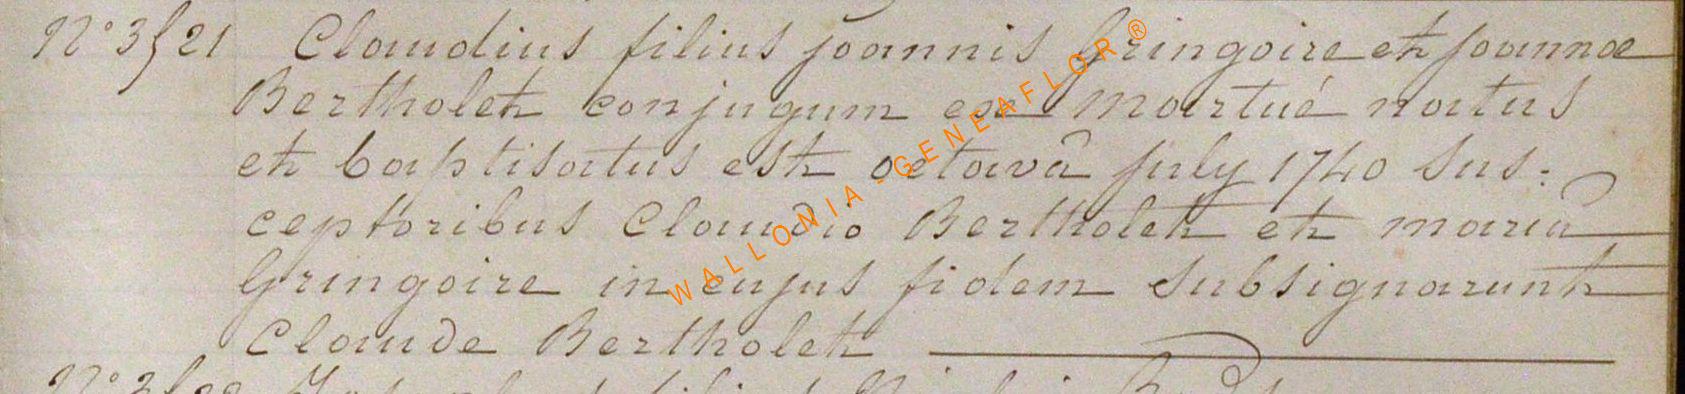 N° 3/21 Claudius filius joannis Gringoire et joannæ
Bertholet conjugum ex Martué natus
et baptisatus est octavâ july 1740 sus:
ceptoribus Claudio Bertholet et mariâ
Gringoire in cujus fidem subsignarunt
Claude Bertholet
WALLONIA - GENEAFLOR ®